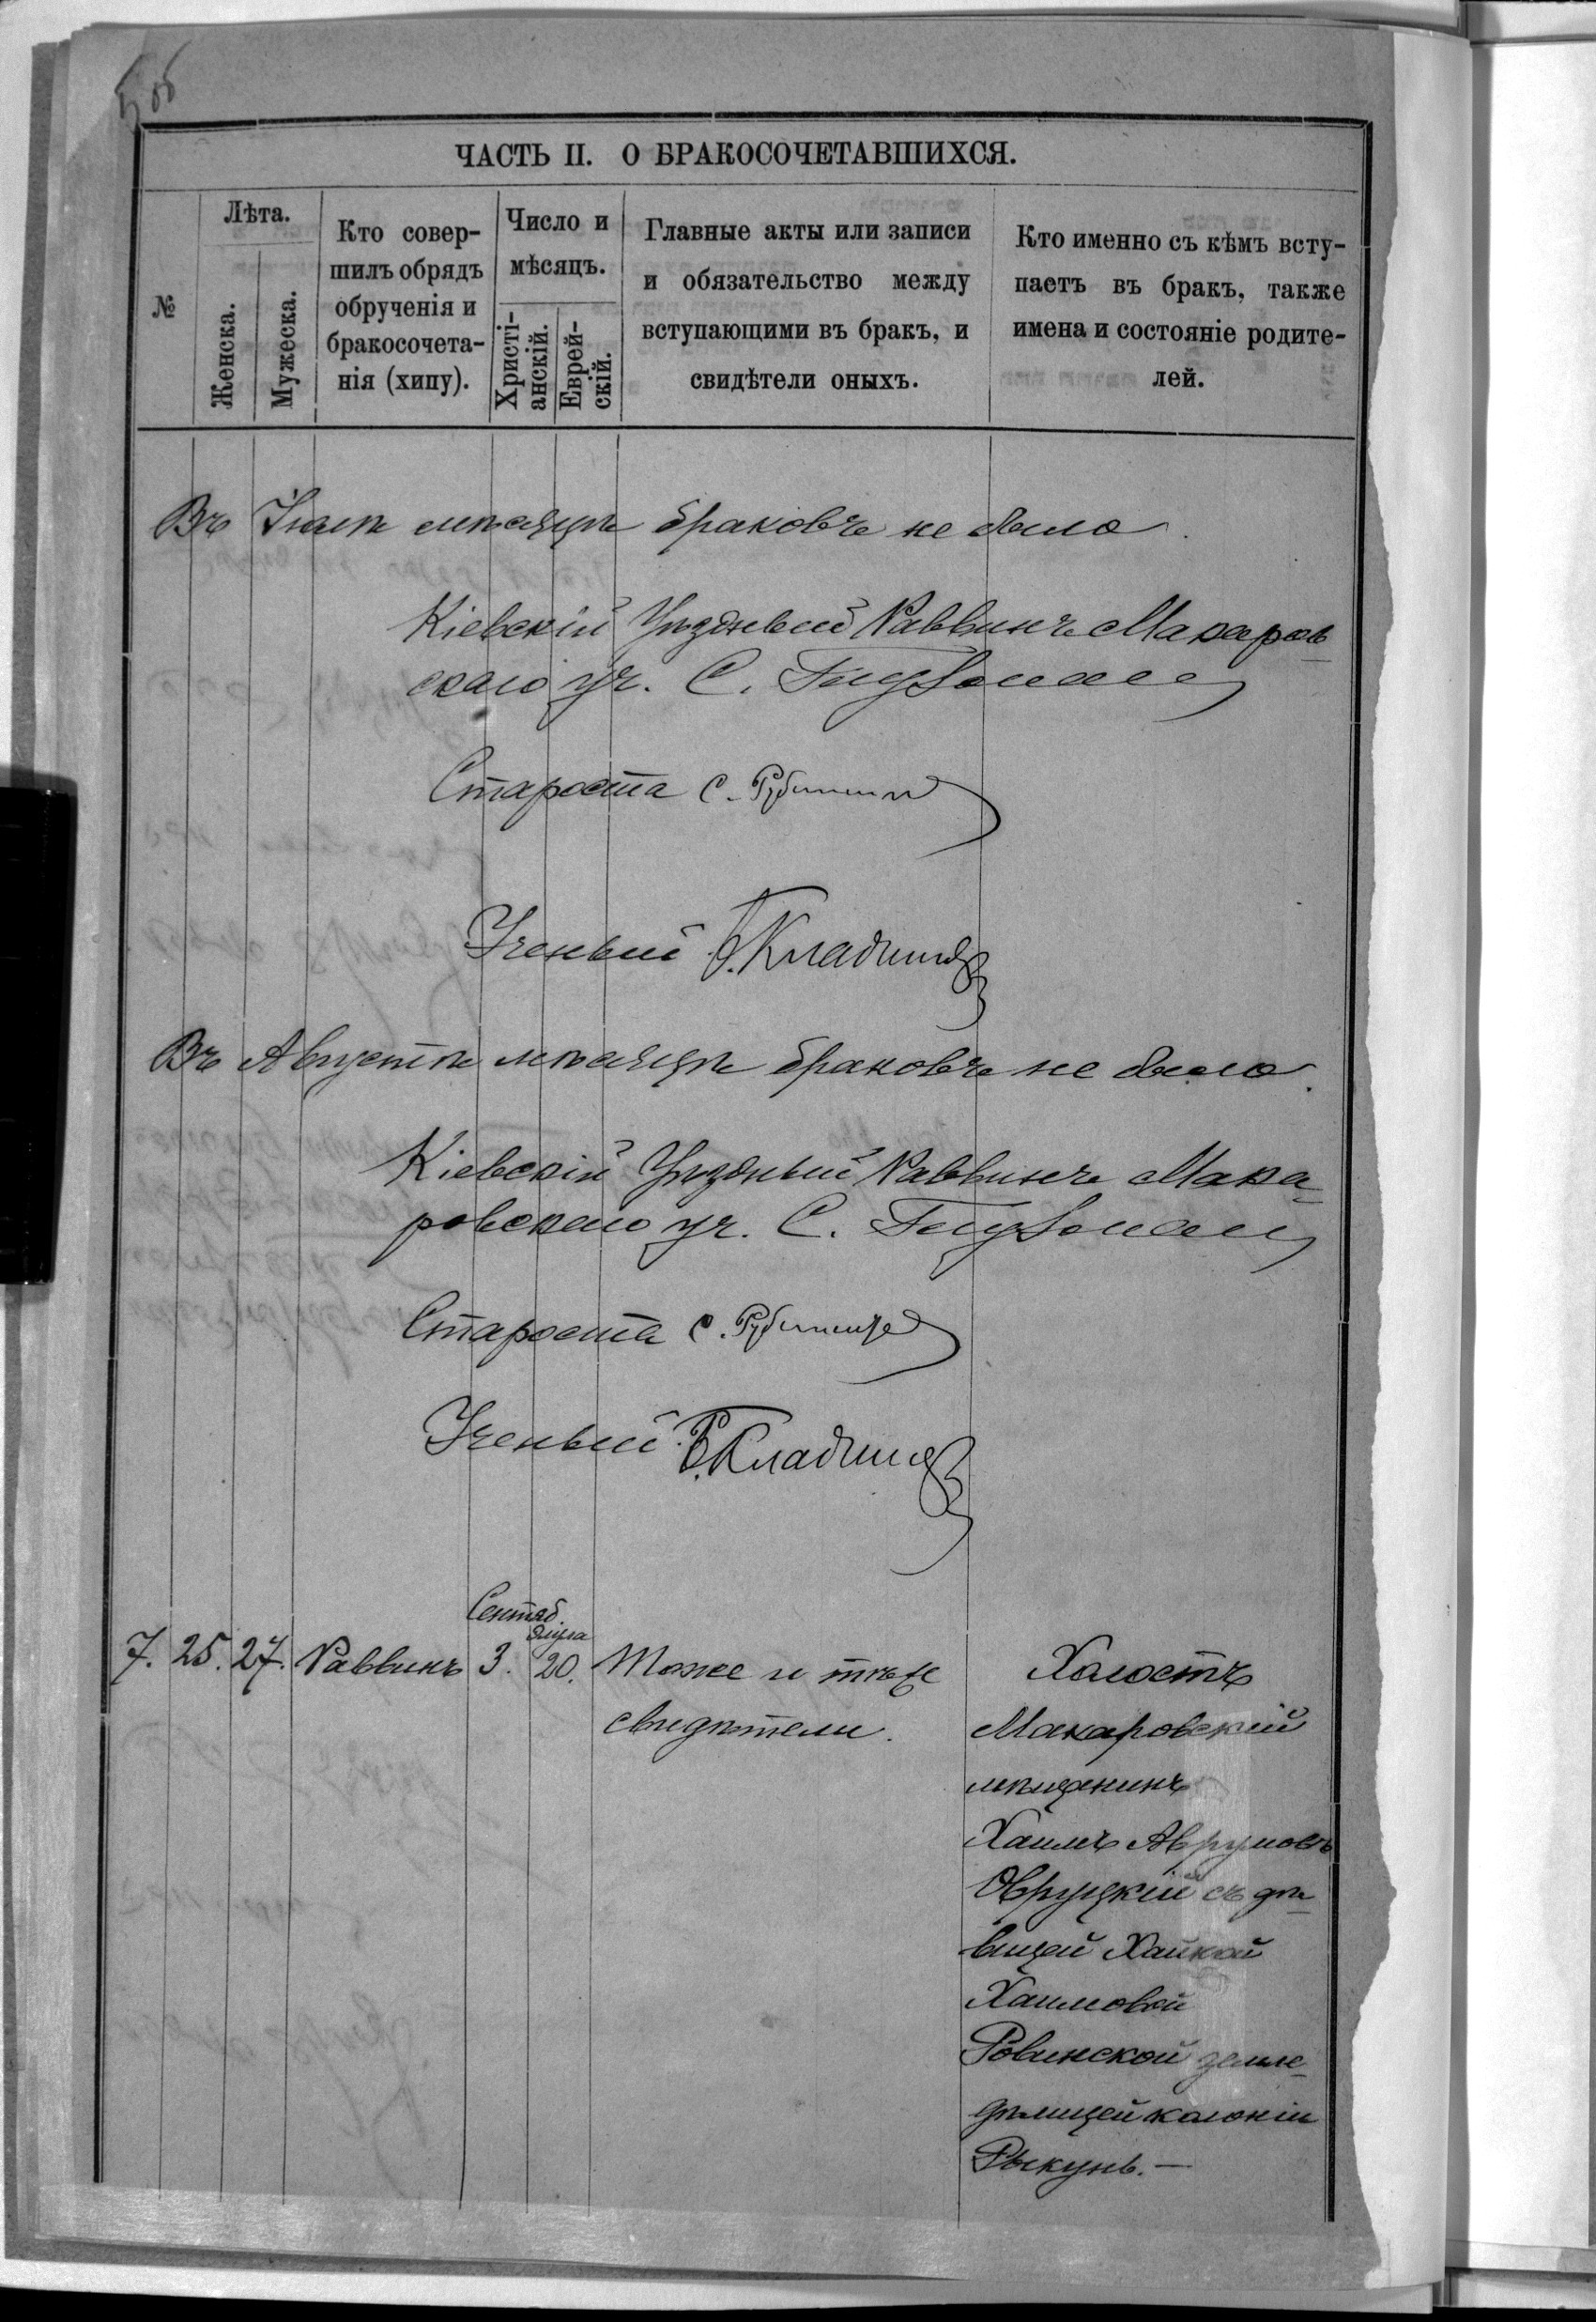 ЧАСТЬ II. О БРАКОСОЧЕТАВШИХСЯ.
№
Лѣта.
Женска.
Мужеска.
Кто совер-
шилъ обрядъ
обрученія и
бракосочета-
нія (хипу).
Число и
мѣсяцъ.
Христі-
анскій.
Еврей-
скій.
Главные акты или записи
и обязательство между
вступающими въ бракъ, и
свидѣтели оныхъ.
Кто именно съ кѣмъ всту-
паетъ въ бракъ, также
имена и состояніе родите-
лей.
Въ мѣсяцѣ браковъ не было.
Кіевскій Уѣздный Раввинъ Макаров-
скаго уч. С.
Староста С.
Ученый
Въ Августѣ мѣсяцѣ браковъ не было.
Кіевскій Уѣздный Раввинъ Мака-
ровскаго уч. С.
Староста С.
Ученый
Сентяб.
Элула
7. 25. 27. Раввинъ 3. 20. Тоже и тѣже
свидѣтели.
Холостъ
Макаровскій
мѣщанинъ
Хаимъ Аврумовъ
Овруцкій съ дѣ-
вицей Хайкой
Хаимовой
Ровинской земле-
дѣлицей колоніи
Рыкунь. —